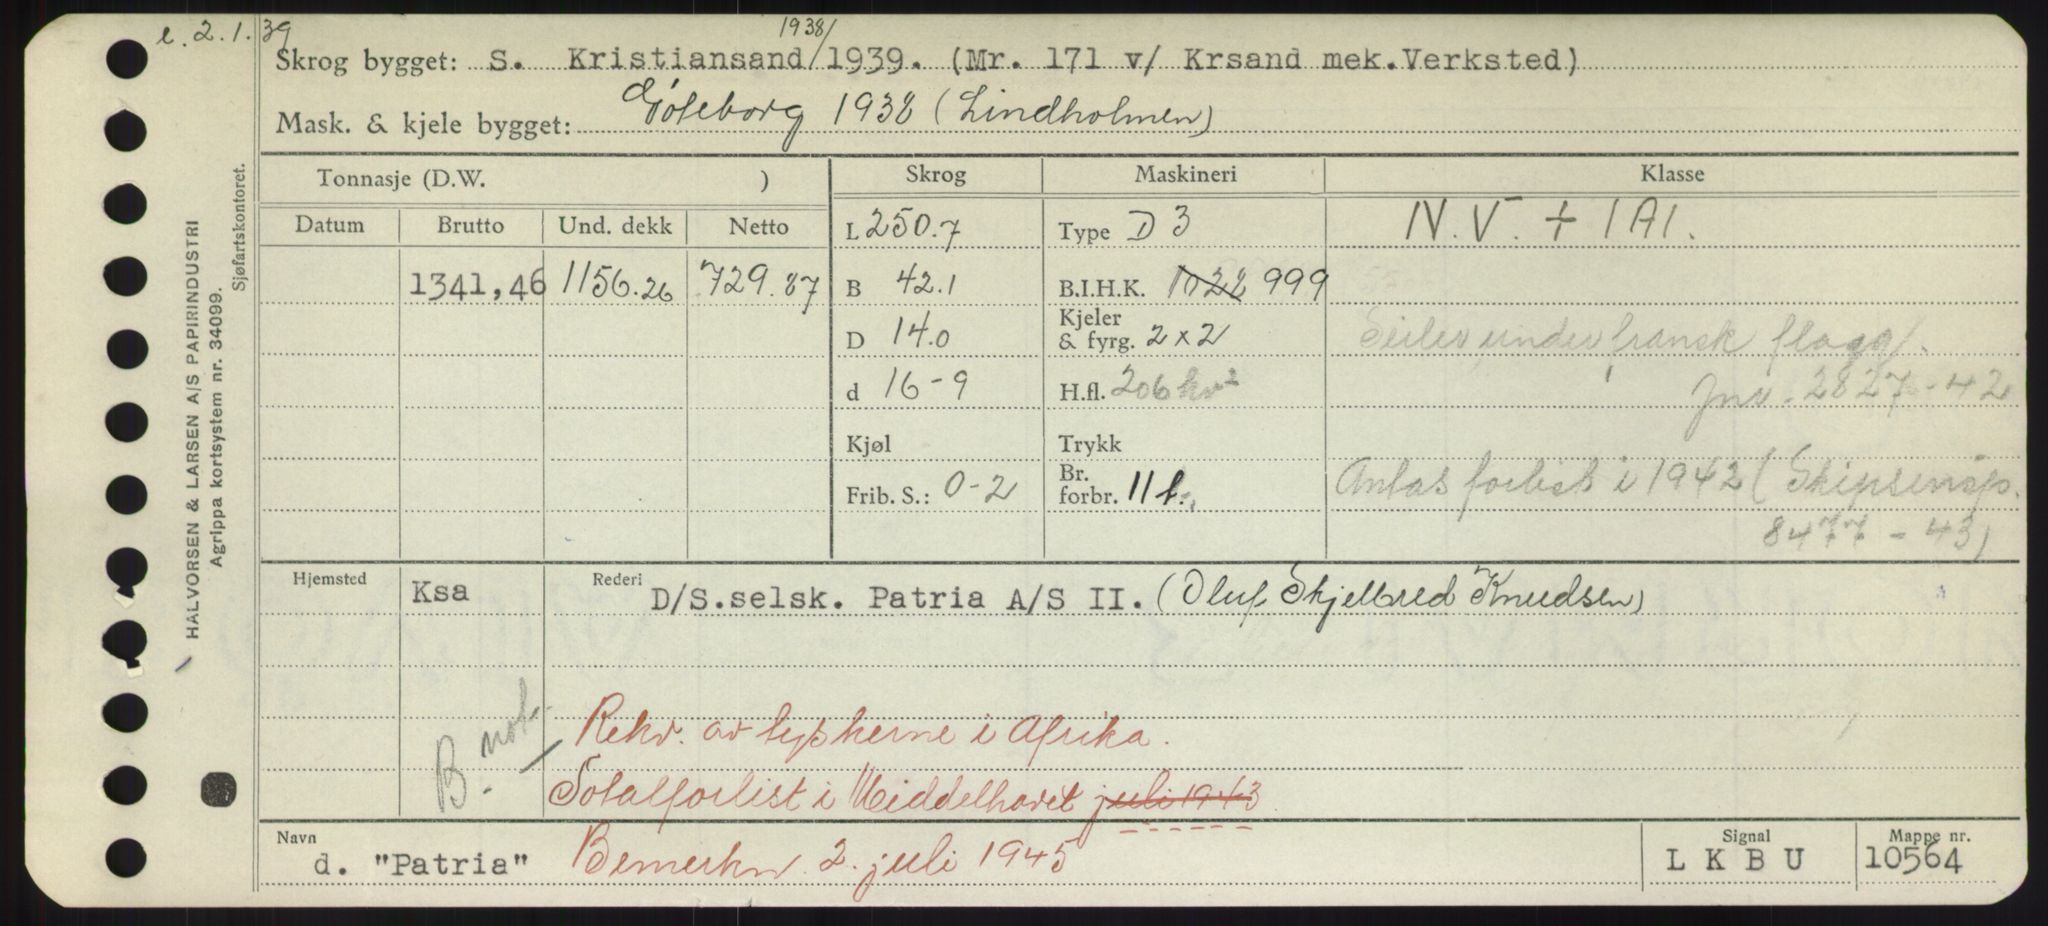 e. 2.1.39
1938/
Skrog bygget: S. Kristiansand/1939. (Nr. 171 v/ Krsand mek.Verksted)
Mask. & kjele bygget: Göteborg 1938 (Lindholmen)
Tonnasje (D.W. ) Skrog Maskineri Klasse
Datum Brutto Und. dekk Netto L 250.7 Type D 3 N.V. + 1A1.
1341,46 1156.26 729.87 B 42.1 B.I.H.K. 1022 999
D 14.0 Kjeler & fyrg. 2 x 2 Seiler under fransk flagg.
d 16-9 H.fl. 206 kv² Jnv. 2827-42
Kjøl Trykk
Frib. S.: 0-2 Br. forbr. 11 t. Antas forlist i 1942 (Skipsinsp.
8477-43)
Hjemsted Ksa Rederi D/S.selsk. Patria A/S II. (Oluf Skjelbred Knudsen)
B. not.
Rekv. av tyskerne i Afrika.
Totalforlist i Middelhavet juli 1943
Navn d. "Patria" Bemerkn. 2. juli 1945 Signal L K B U Mappe nr. 10564
HALVORSEN & LARSEN A/S PAPIRINDUSTRI
Agrippa kortsystem nr. 34099.
Sjøfartskontoret.